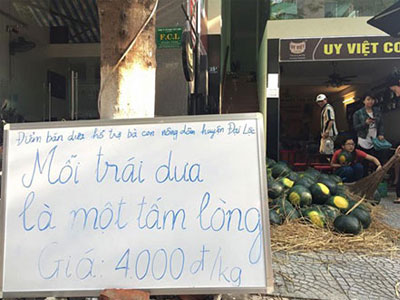 F.C.I.
UY VIỆT CO
Điểm bán dưa hỗ trợ bà con nông dân huyện Đại Lộc
Mỗi trái dưa
là một tấm lòng
Giá: 4.000 đ/kg